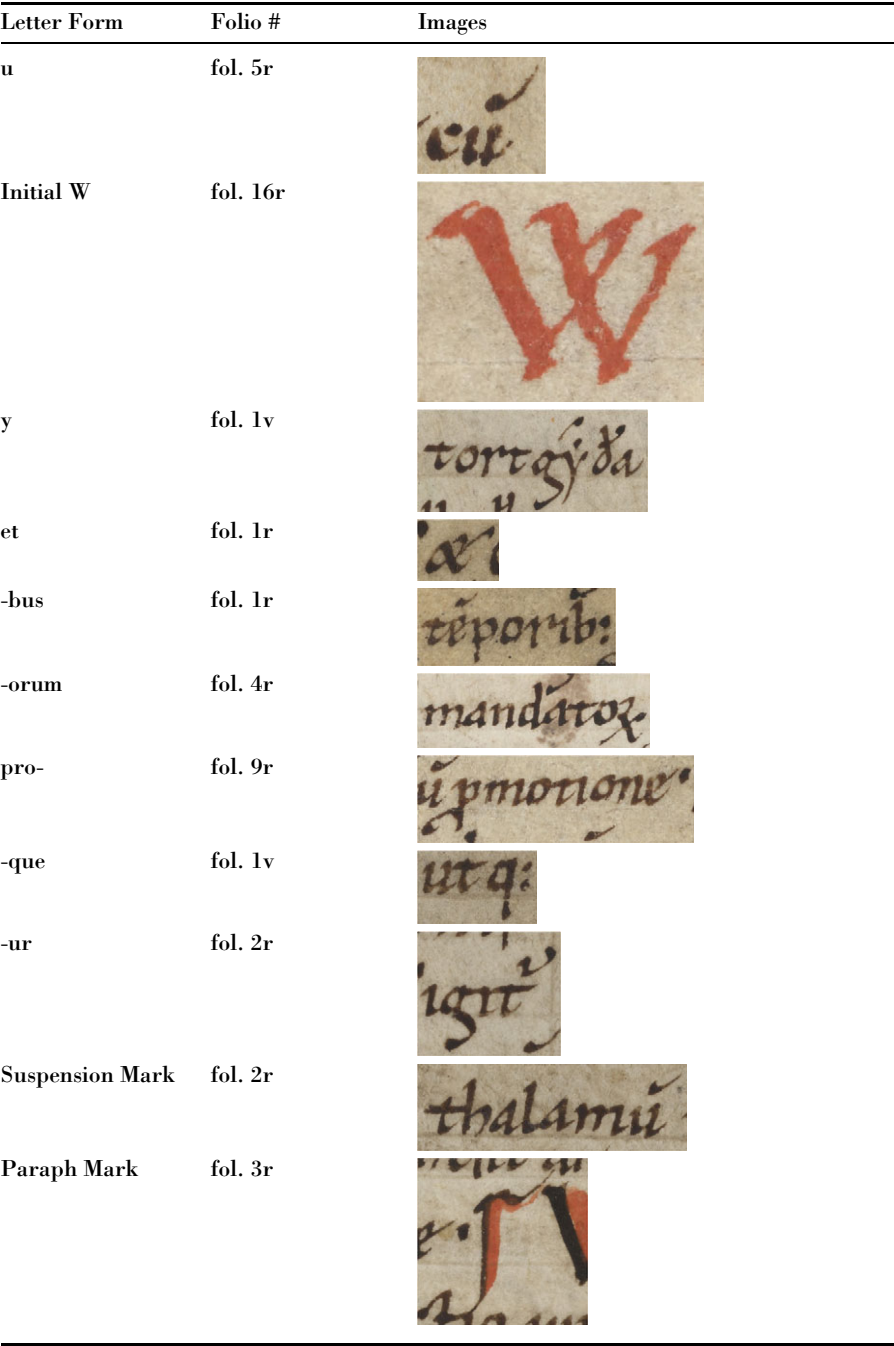 Letter Form Folio # Images
u fol. 5r cū
Initial W fol. 16r W
y fol. 1v tortgẏða
et fol. 1r &
-bus fol. 1r tēporib:
-orum fol. 4r mandatoꝝ
pro- fol. 9r ū ꝓmotione
-que fol. 1v utq:
-ur fol. 2r igit᷑
Suspension Mark fol. 2r thalamū
Paraph Mark fol. 3r